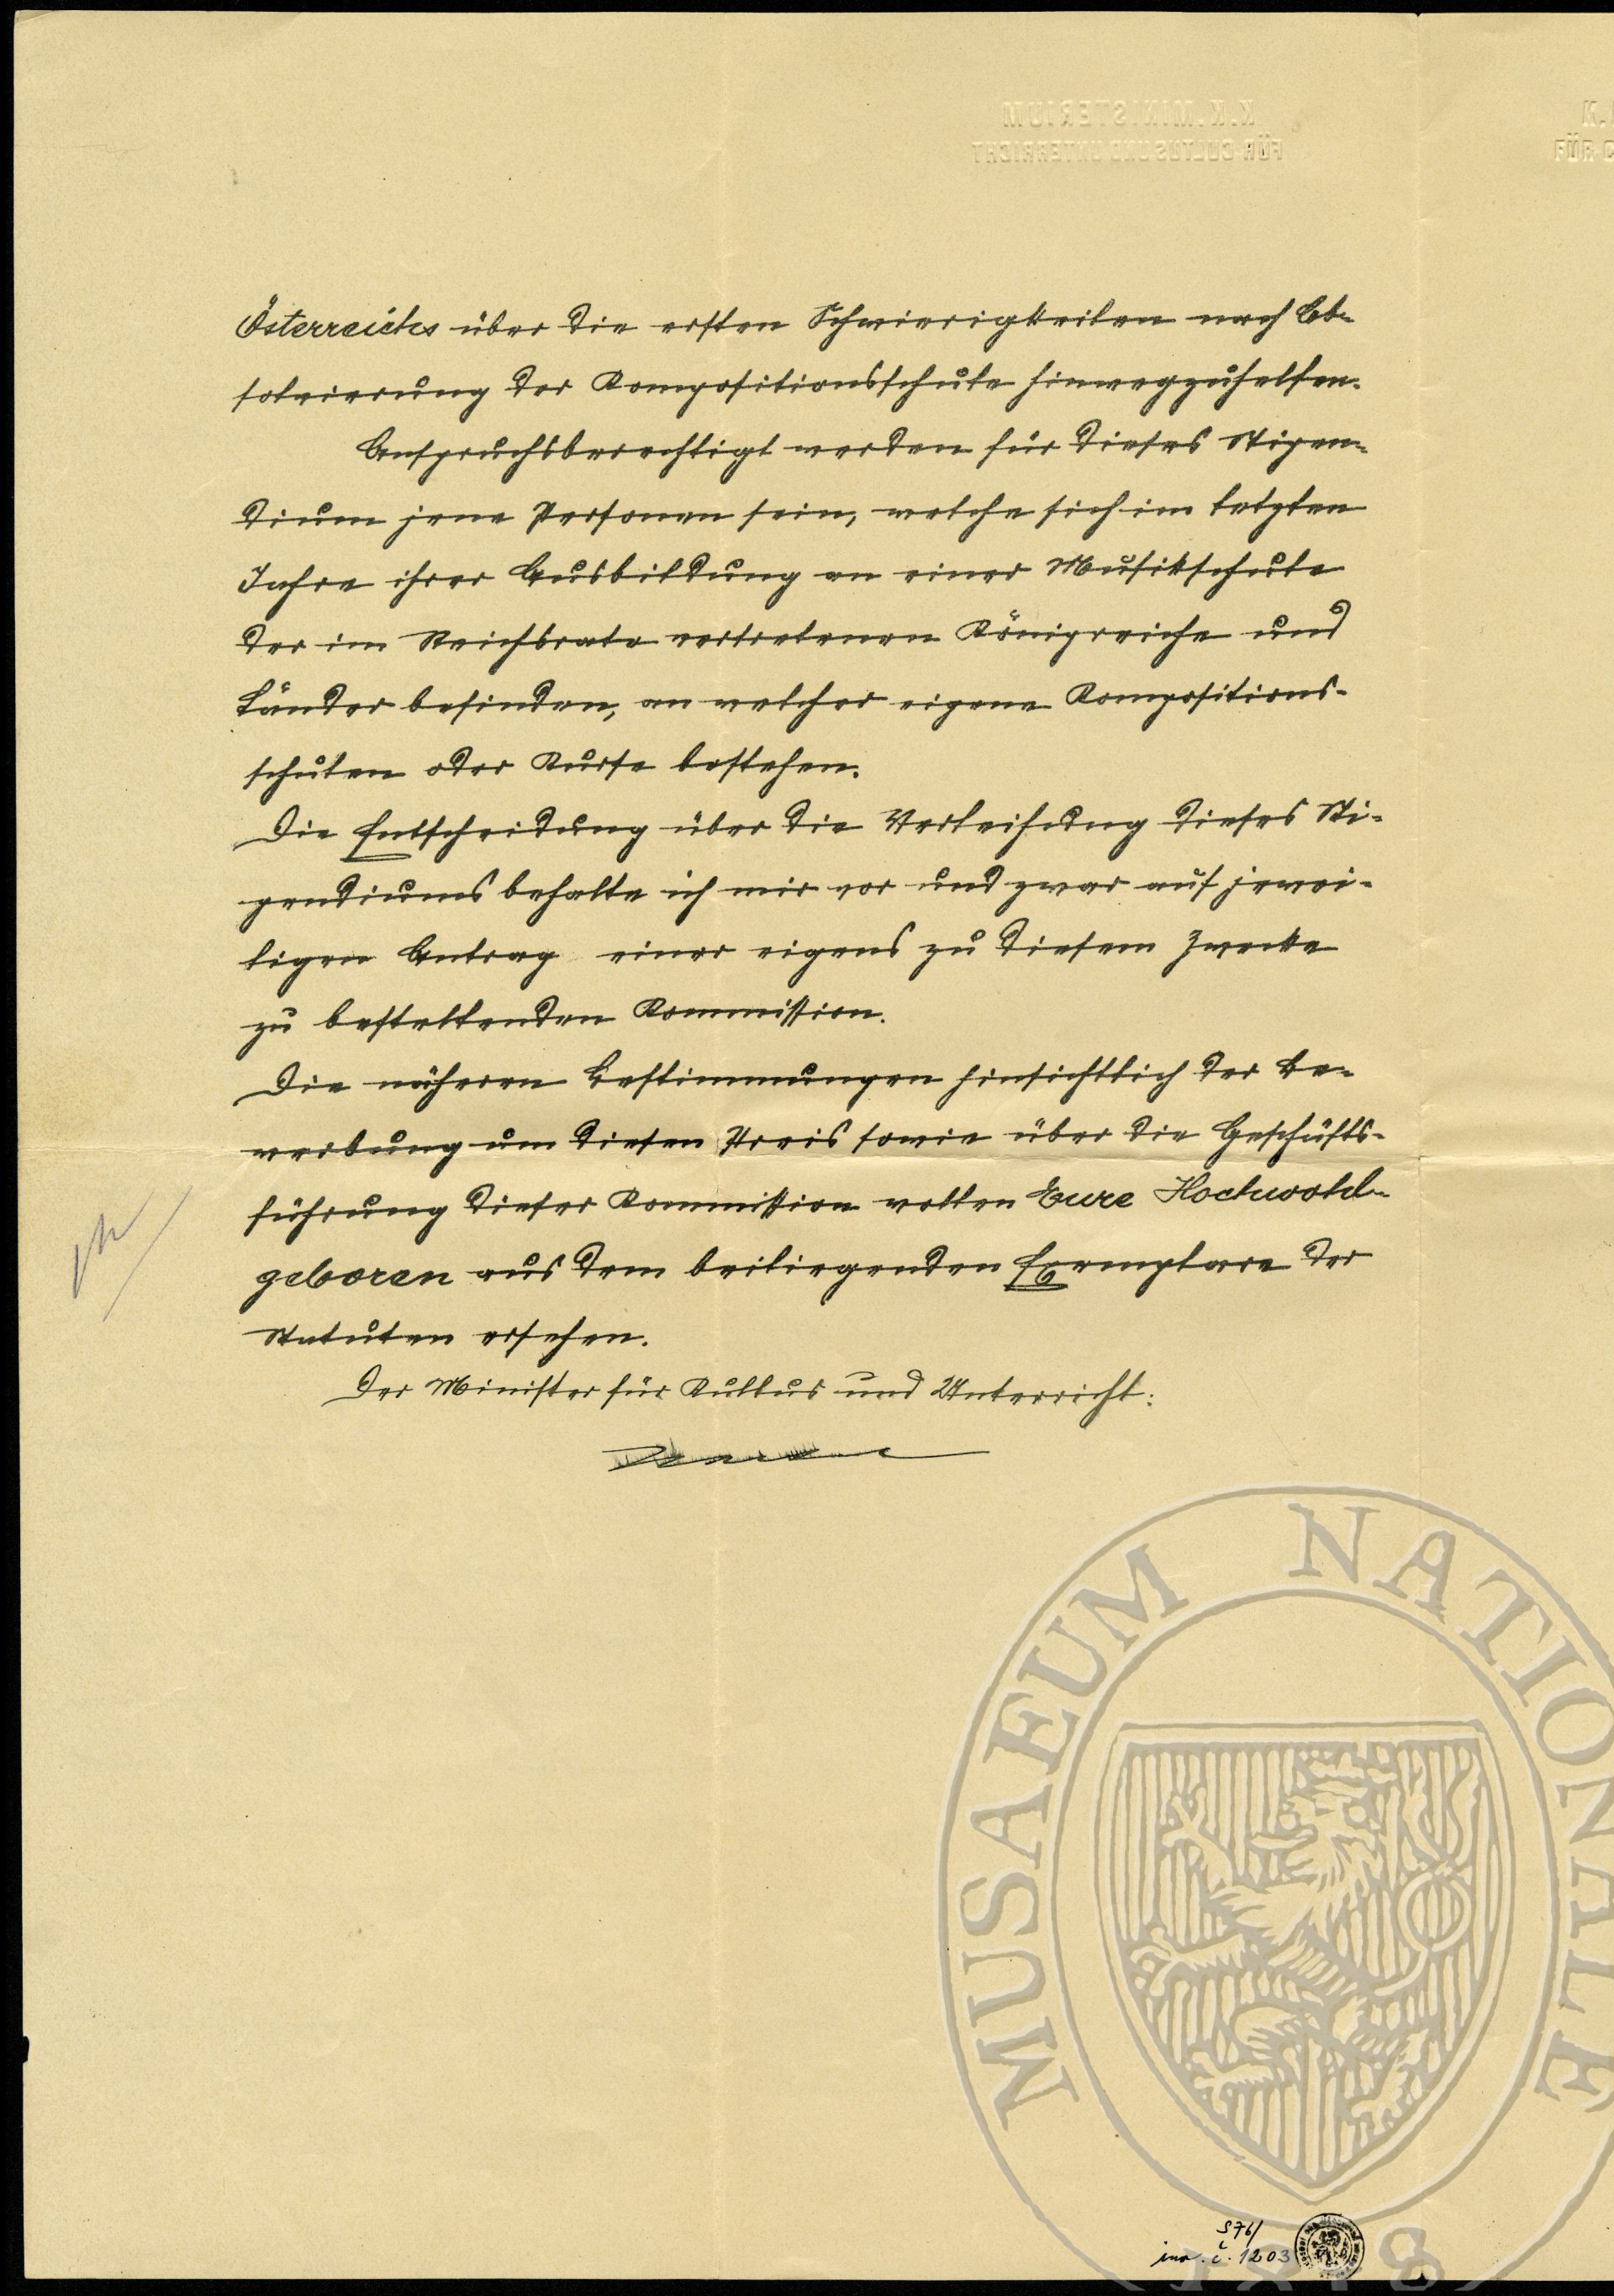 K.K. MINISTERIUM
FÜR CULTUS UND UNTERRICHT
Österreichs über die ersten Schwierigkeiten nach Ab-
solvierung der Kompositionsschule hinwegzuhelfen.
Anspruchsberechtigt werden für dieses Stipen-
dium jene Personen sein, welche sich im letzten
Jahre ihrer Ausbildung an einer Musikschule
der im Reichsrate vertretenen Königreiche und
Länder befinden, an welcher eigene Kompositions-
schulen oder Kurse bestehen.
Die Entscheidung über die Verleihung dieses Sti-
pendiums behalte ich mir vor und zwar auf jewei-
ligen Antrag einer eigens zu diesem Zwecke
zu bestellenden Kommission.
Die näheren Bestimmungen hinsichtlich der Be-
werbung um diesen Preis sowie über die Geschäfts-
führung dieser Kommission wollen Eure Hochwohl-
geboren aus dem beiliegenden Exemplare der
Statuten ersehen.
Der Minister für Kultus und Unterricht:
MUSAEUM NATIONALE
1818
S76/
inv. č. 1203